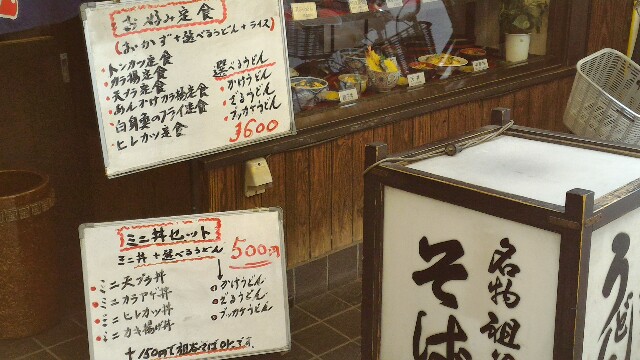 お好み定食
(おかず+選べるうどん+ライス)
・トンカツ定食
・カラ揚定食
・天プラ定食
・あんかけカラ揚定食
・白身魚のフライ定食
・ヒレカツ定食
選べるうどん
・かけうどん
・ざるうどん
・ブッカケうどん
¥600
ミニ丼セット
ミニ丼+選べるうどん
500円
・ミニ天プラ丼
・ミニカラアゲ丼
・ミニヒレカツ丼
・ミニカキ揚げ丼
○かけうどん
○ざるうどん
○ブッカケうどん
+150円で祖谷そばOKです。
名物 祖
そば
うどん